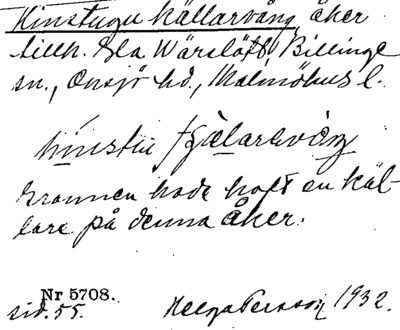 Hinstugu källarvång åker
tillh. Ela Wärslöff, Billinge
sn., Onsjö hd., Malmöhus l.
hinstu
Grannen hade haft en käl-
lare på denna åker.
Nr 5708.
sid. 55. Helga Persson 1932.